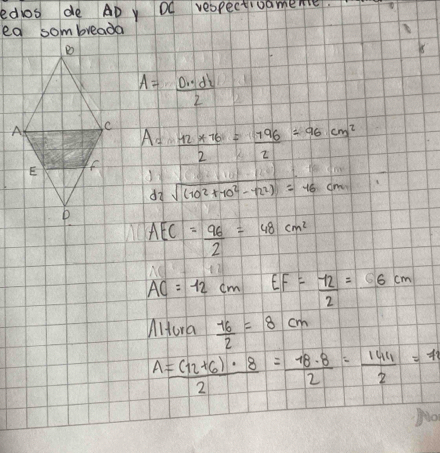 edios de AD y DC respectivamente.
ea sombreada
B
A = D1·d2 / 2
A C
A = 12 * 16 / 2 = 196 / 2 = 96 cm²
E F
d2 √(10²+10²-12²) = 16 cm
D
AEC = 96 / 2 = 48 cm²
AC = 12 cm EF = 12 / 2 = 6 cm
Altura 16 / 2 = 8 cm
A = (12+6) · 8 / 2 = 18·8 / 2 = 144 / 2 =